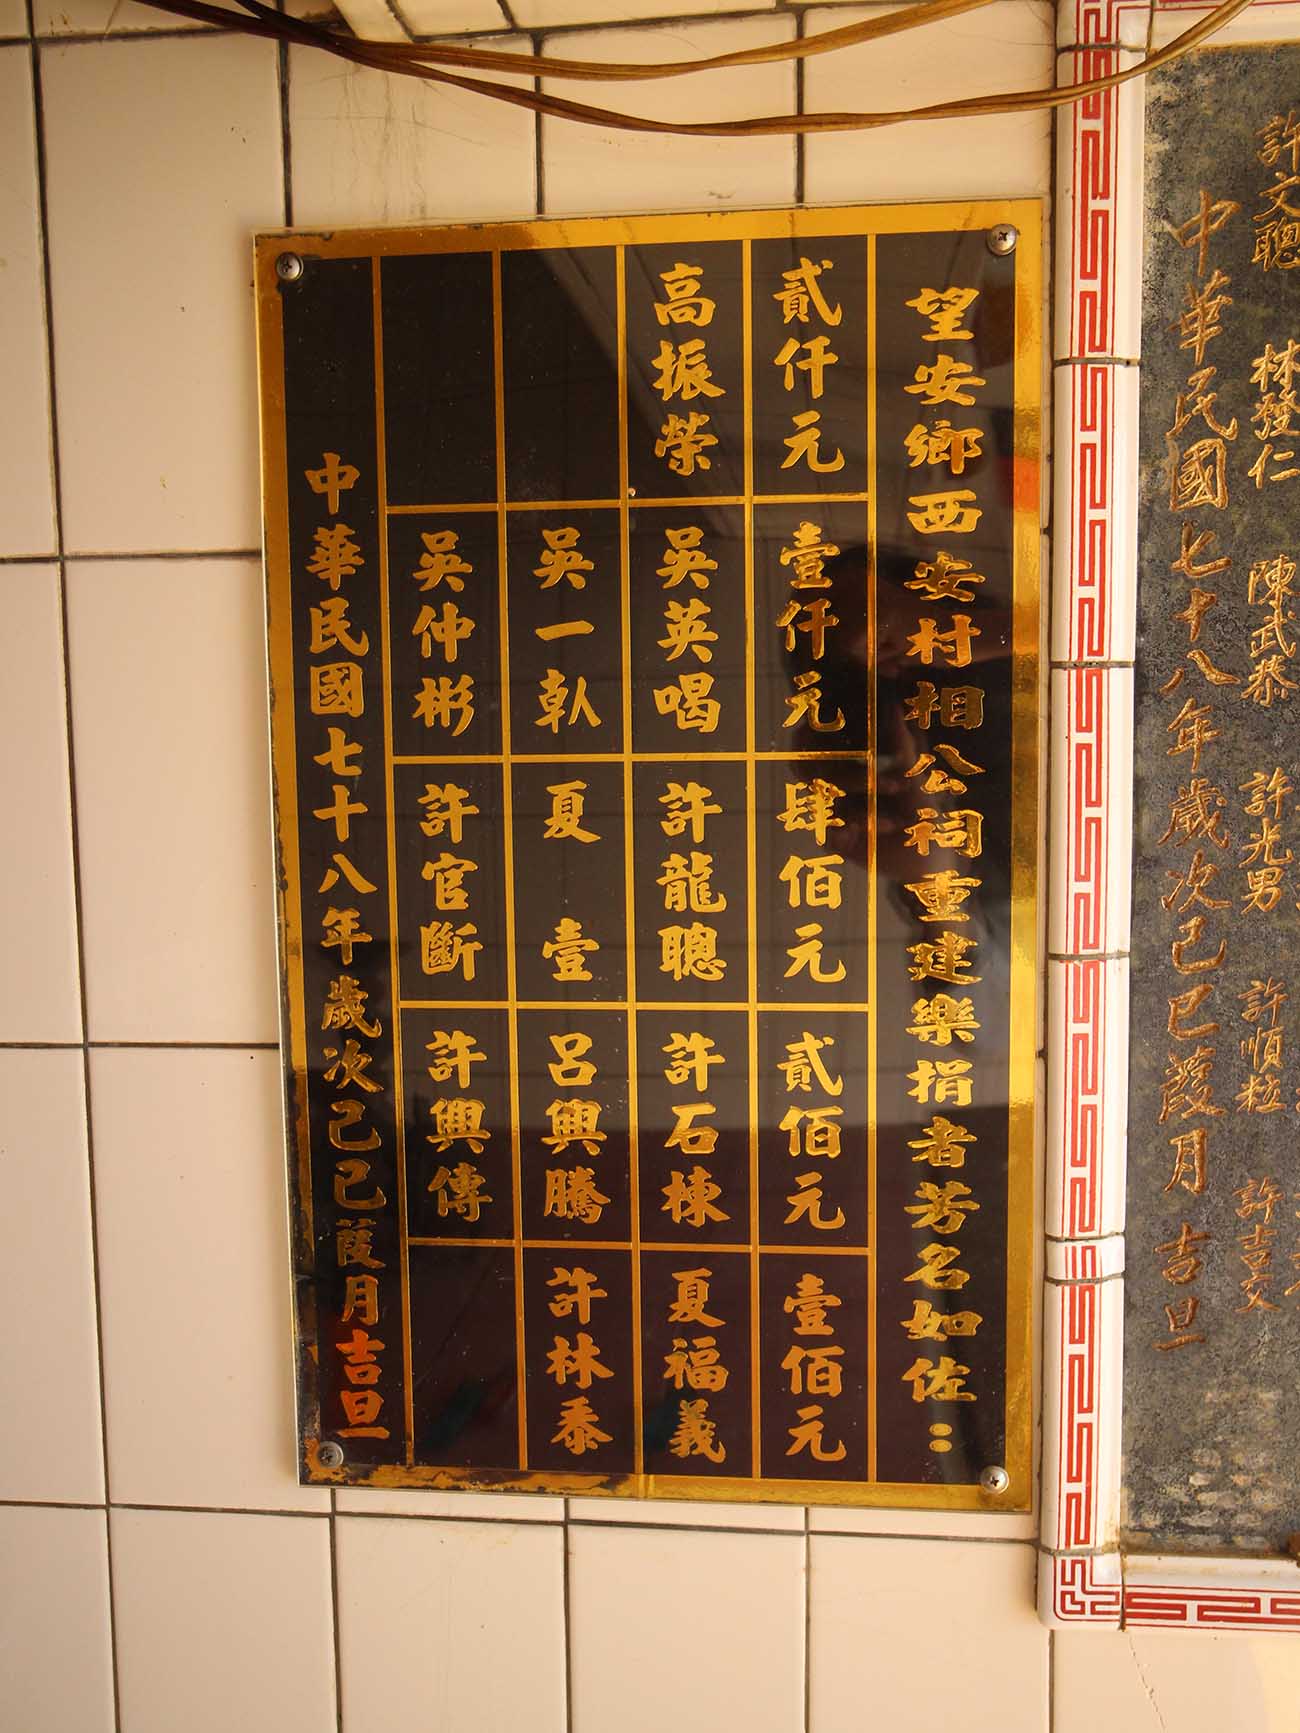 許文聰 林發仁 陳武恭 許光男 許順粒 許吉文
中華民國七十八年歲次己巳葭月 吉旦
望安鄉西安村相公祠重建樂捐者芳名如佐：
貳仟元 壹仟元 肆佰元 貳佰元 壹佰元
高振榮 吳英喝 許龍聰 許石棟 夏福義
吳一 夏壹 呂興騰 許林泰
吳仲彬 許官斷 許興傳
中華民國七十八年歲次己巳葭月吉旦